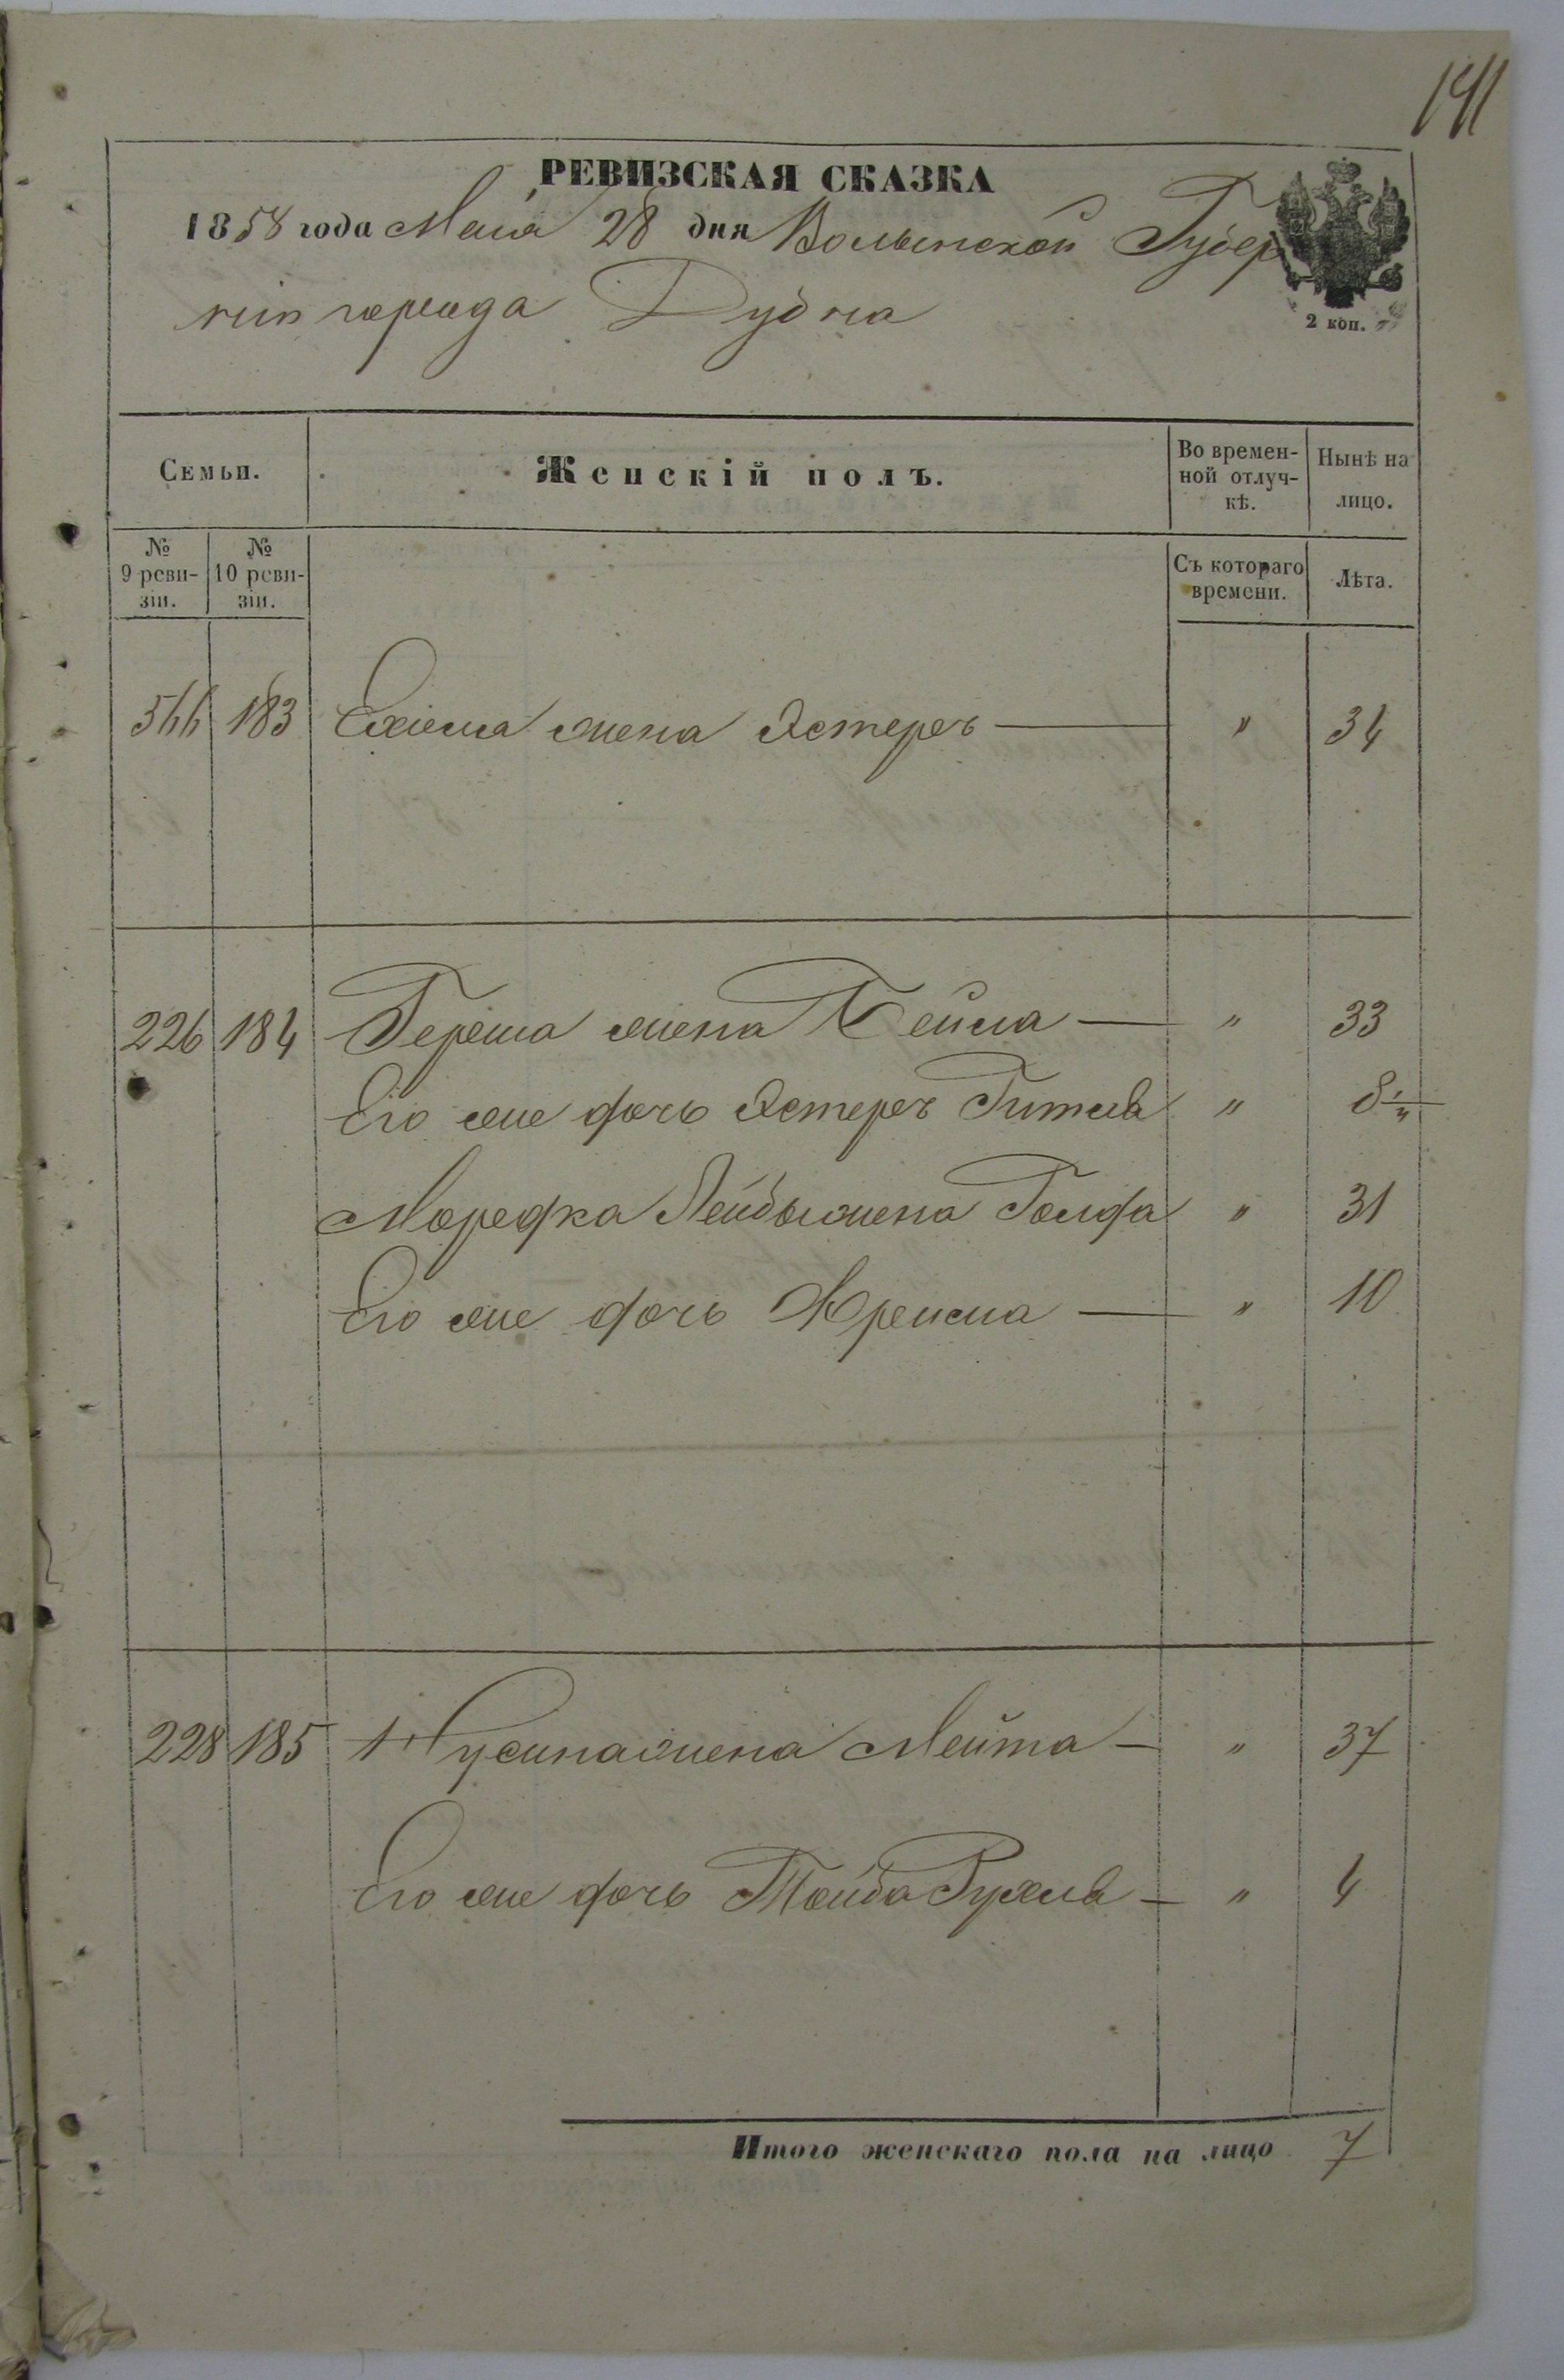 141
РЕВИЗСКАЯ СКАЗКА
1858 года Мая 28 дня Волынской Губер
ніи города Дубна
2 коп.
Семьи. Женскій полъ. Во времен-ной отлуч-кѣ. Нынѣ на лицо.
№ 9 реви-зіи. № 10 реви-зіи. Съ котораго времени. Лѣта.
566 183 Ехіеля жена Эстеръ — " 34
226 184 Герша жена Бейла — " 33
Его же дочь Эстеръ Гитля " 8 1/4
Мордка Лейбы жена Голда " 31
Его же дочь Крейса — " 10
228 185 Нусина жена Мейта — " 37
Его же дочь Тойба Рухля — " 4
Итого женскаго пола на лицо 7